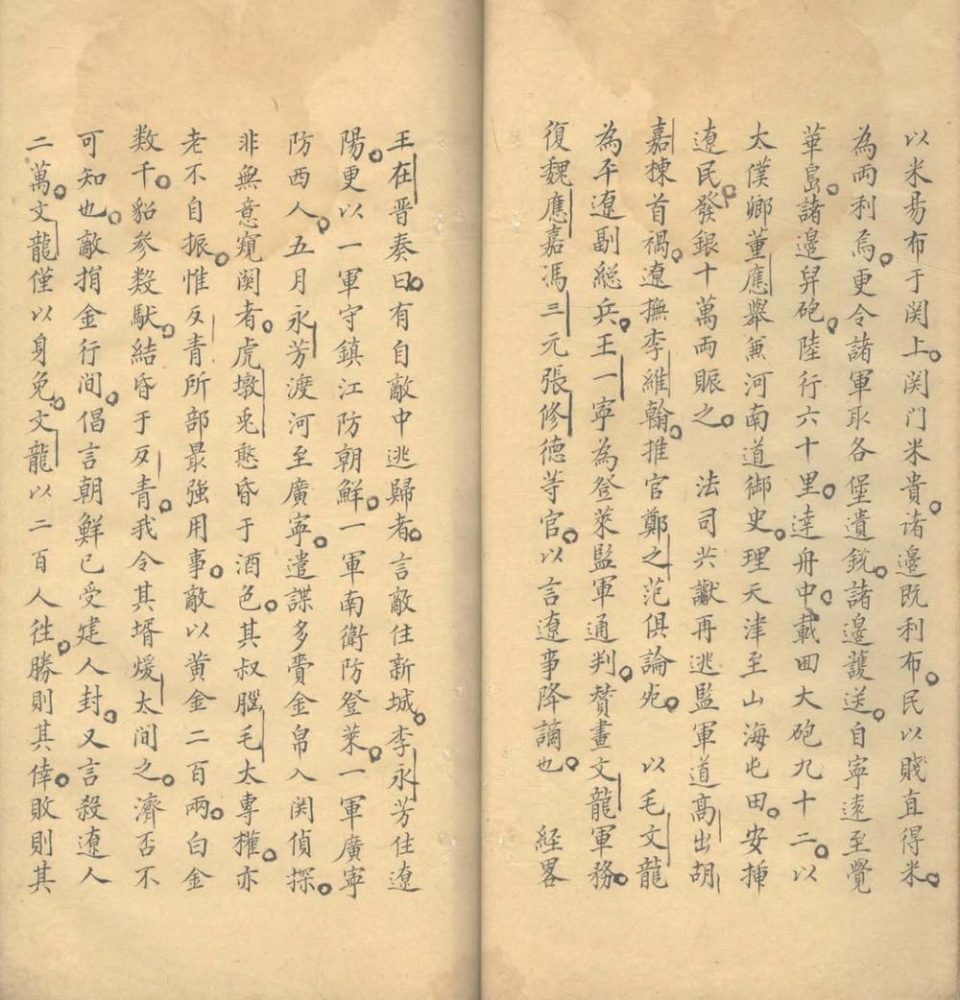 以米易布于関上関门米貴诸邉既利布民以賤直得米
為両利焉更令諸軍取各堡遺銃諸邉護送自寧遠至覺
華島諸邉舁砲陸行六十里達舟中載囬大砲九十二以
太僕卿董應舉兼河南道御史理天津至山海屯田安揷
遼民發銀十萬両賑之　法司共讞再逃監軍道高出胡
嘉棟首禍遼撫李維翰推官鄭之范俱論死　以毛文龍
為平遼副総兵王一寧為登萊監軍通判賛畫文龍軍務
復魏應嘉馮三元張修德等官以言遼事降謫也　経畧
王在晋奏曰有自敵中逃歸者言敵住新城李永芳住遼
陽更以一軍守鎮江防朝鮮一軍南衛防登萊一軍廣寧
防西人五月永芳渡河至廣寧遣諜多賫金帛入関偵探
非無意窺関者虎墩兎憨昏于酒色其叔腦毛大專權亦
老不自振惟反青所部最強用事敵以黄金二百兩白金
数千貂参数馱結昏于反青我令其壻煖太间之濟否不
可知也敵捐金行间倡言朝鮮已受建人封又言殺遼人
二萬文龍僅以身免文龍以二百人徃勝則其倖敗則其